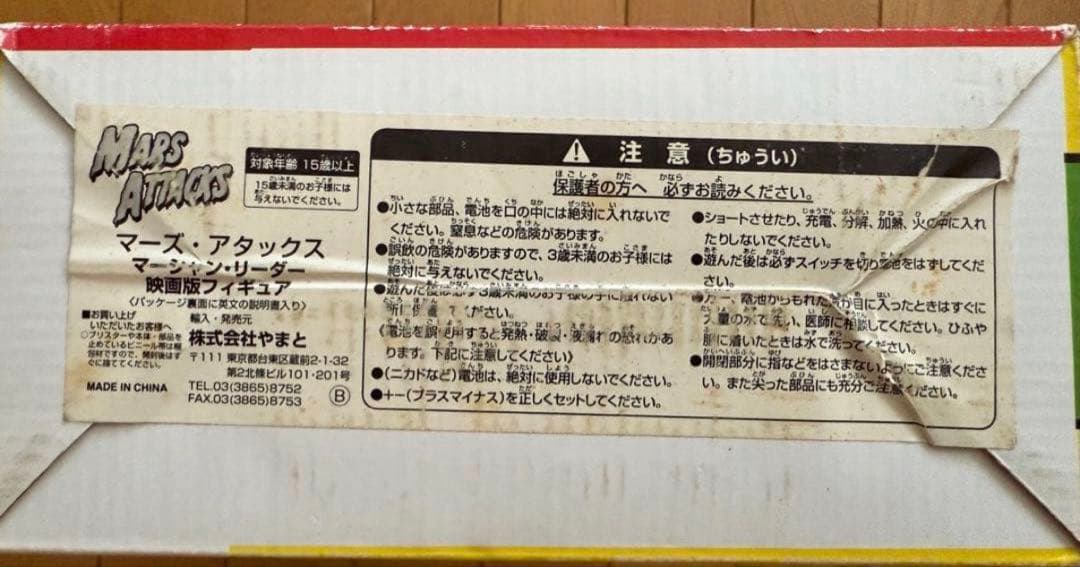 MARS
ATTACKS
対象年齢 15歳以上
15歳未満のお子様には
与えないでください。
マーズ・アタックス
マーシャン・リーダー
映画版フィギュア
〈パッケージ裏面に英文の説明書入り〉
■お買い上げ
いただいたお客様へ
○ブリスターや本体・部品を
止めているビニール帯は梱
包材ですので、開封後はす
ぐに捨ててください。
輸入・発売元
株式会社やまと
〒111 東京都台東区蔵前2-1-32
第2北條ビル101・201号
TEL.03(3865)8752
FAX.03(3865)8753
MADE IN CHINA
B
注 意 (ちゅうい)
保護者の方へ 必ずお読みください。
●小さな部品、電池を口の中には絶対に入れないで
ください。窒息などの危険があります。
●誤飲の危険がありますので、3歳未満のお子様には
絶対に与えないでください。
●遊んだ後は必ず3歳未満のお子様の手に触れない
ください。
《電池を誤使用すると発熱・破裂・液漏れの恐れがあ
ります。下記に注意してください》
●(ニカドなど)電池は、絶対に使用しないでください。
●+-(プラスマイナス)を正しくセットしてください。
●ショートさせたり、充電、分解、加熱、火の中に入れ
たりしないでください。
●遊んだ後は必ずスイッチを切り電池をはずしてくだ
さい。
電池からもれた液が目に入ったときはすぐに
医師に相談してください。ひふや
服に着いたときは水で洗ってください。
●開閉部分に指などをはさまないようにご注意くださ
い。また尖った部品にも充分ご注意ください。